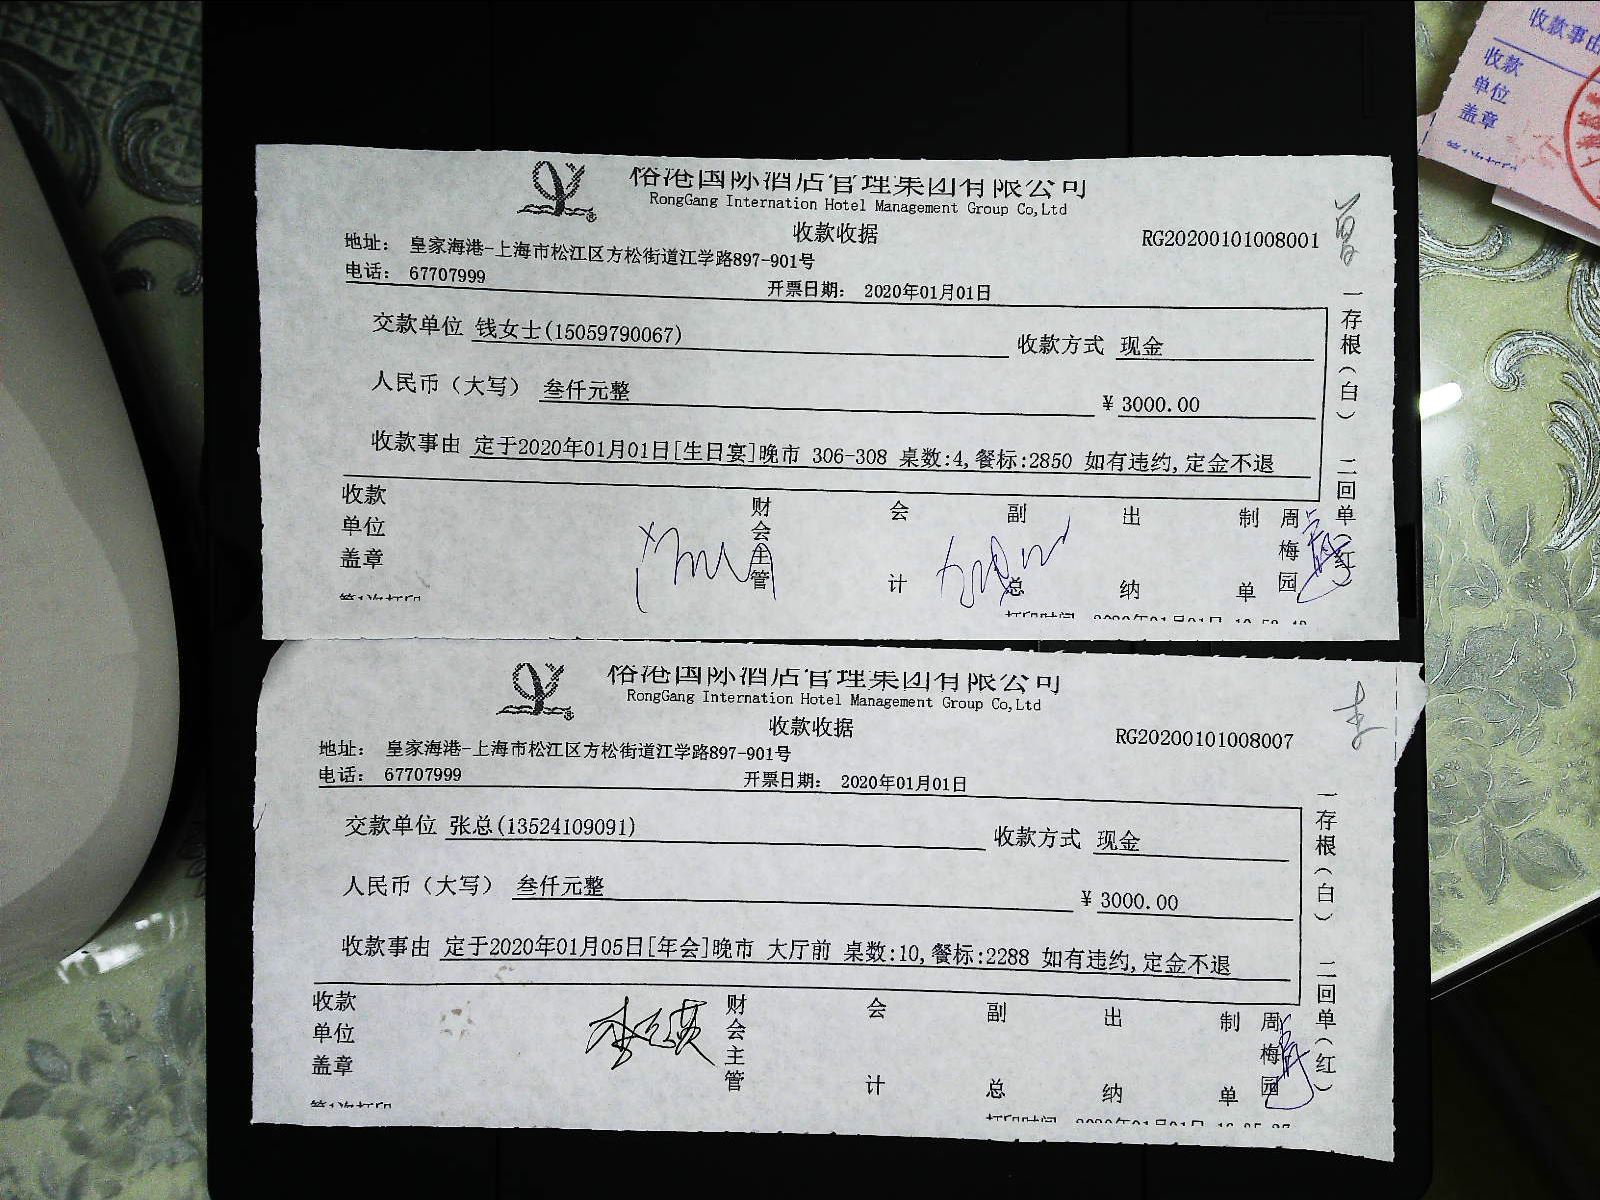 收款事由
收款
单位
盖章
裕港国际酒店管理集团有限公司
RongGang Internation Hotel Management Group Co,Ltd
收款收据
RG20200101008001
地址： 皇家海港-上海市松江区方松街道江学路897-901号
电话： 67707999
开票日期： 2020年01月01日
交款单位 钱女士(15059790067)
收款方式 现金
人民币（大写） 叁仟元整
¥ 3000.00
收款事由 定于2020年01月01日[生日宴]晚市 306-308 桌数:4,餐标:2850 如有违约,定金不退
一存根（白） 二回单（红）
收款单位盖章
财会主管
会计
副总
出纳
制单
周梅园
第1次打印
打印时间
裕港国际酒店管理集团有限公司
RongGang Internation Hotel Management Group Co,Ltd
收款收据
RG20200101008007
地址： 皇家海港-上海市松江区方松街道江学路897-901号
电话： 67707999
开票日期： 2020年01月01日
交款单位 张总(13524109091)
收款方式 现金
人民币（大写） 叁仟元整
¥ 3000.00
收款事由 定于2020年01月05日[年会]晚市 大厅前 桌数:10,餐标:2288 如有违约,定金不退
一存根（白） 二回单（红）
收款单位盖章
财会主管
会计
副总
出纳
制单
周梅园
第1次打印
打印时间